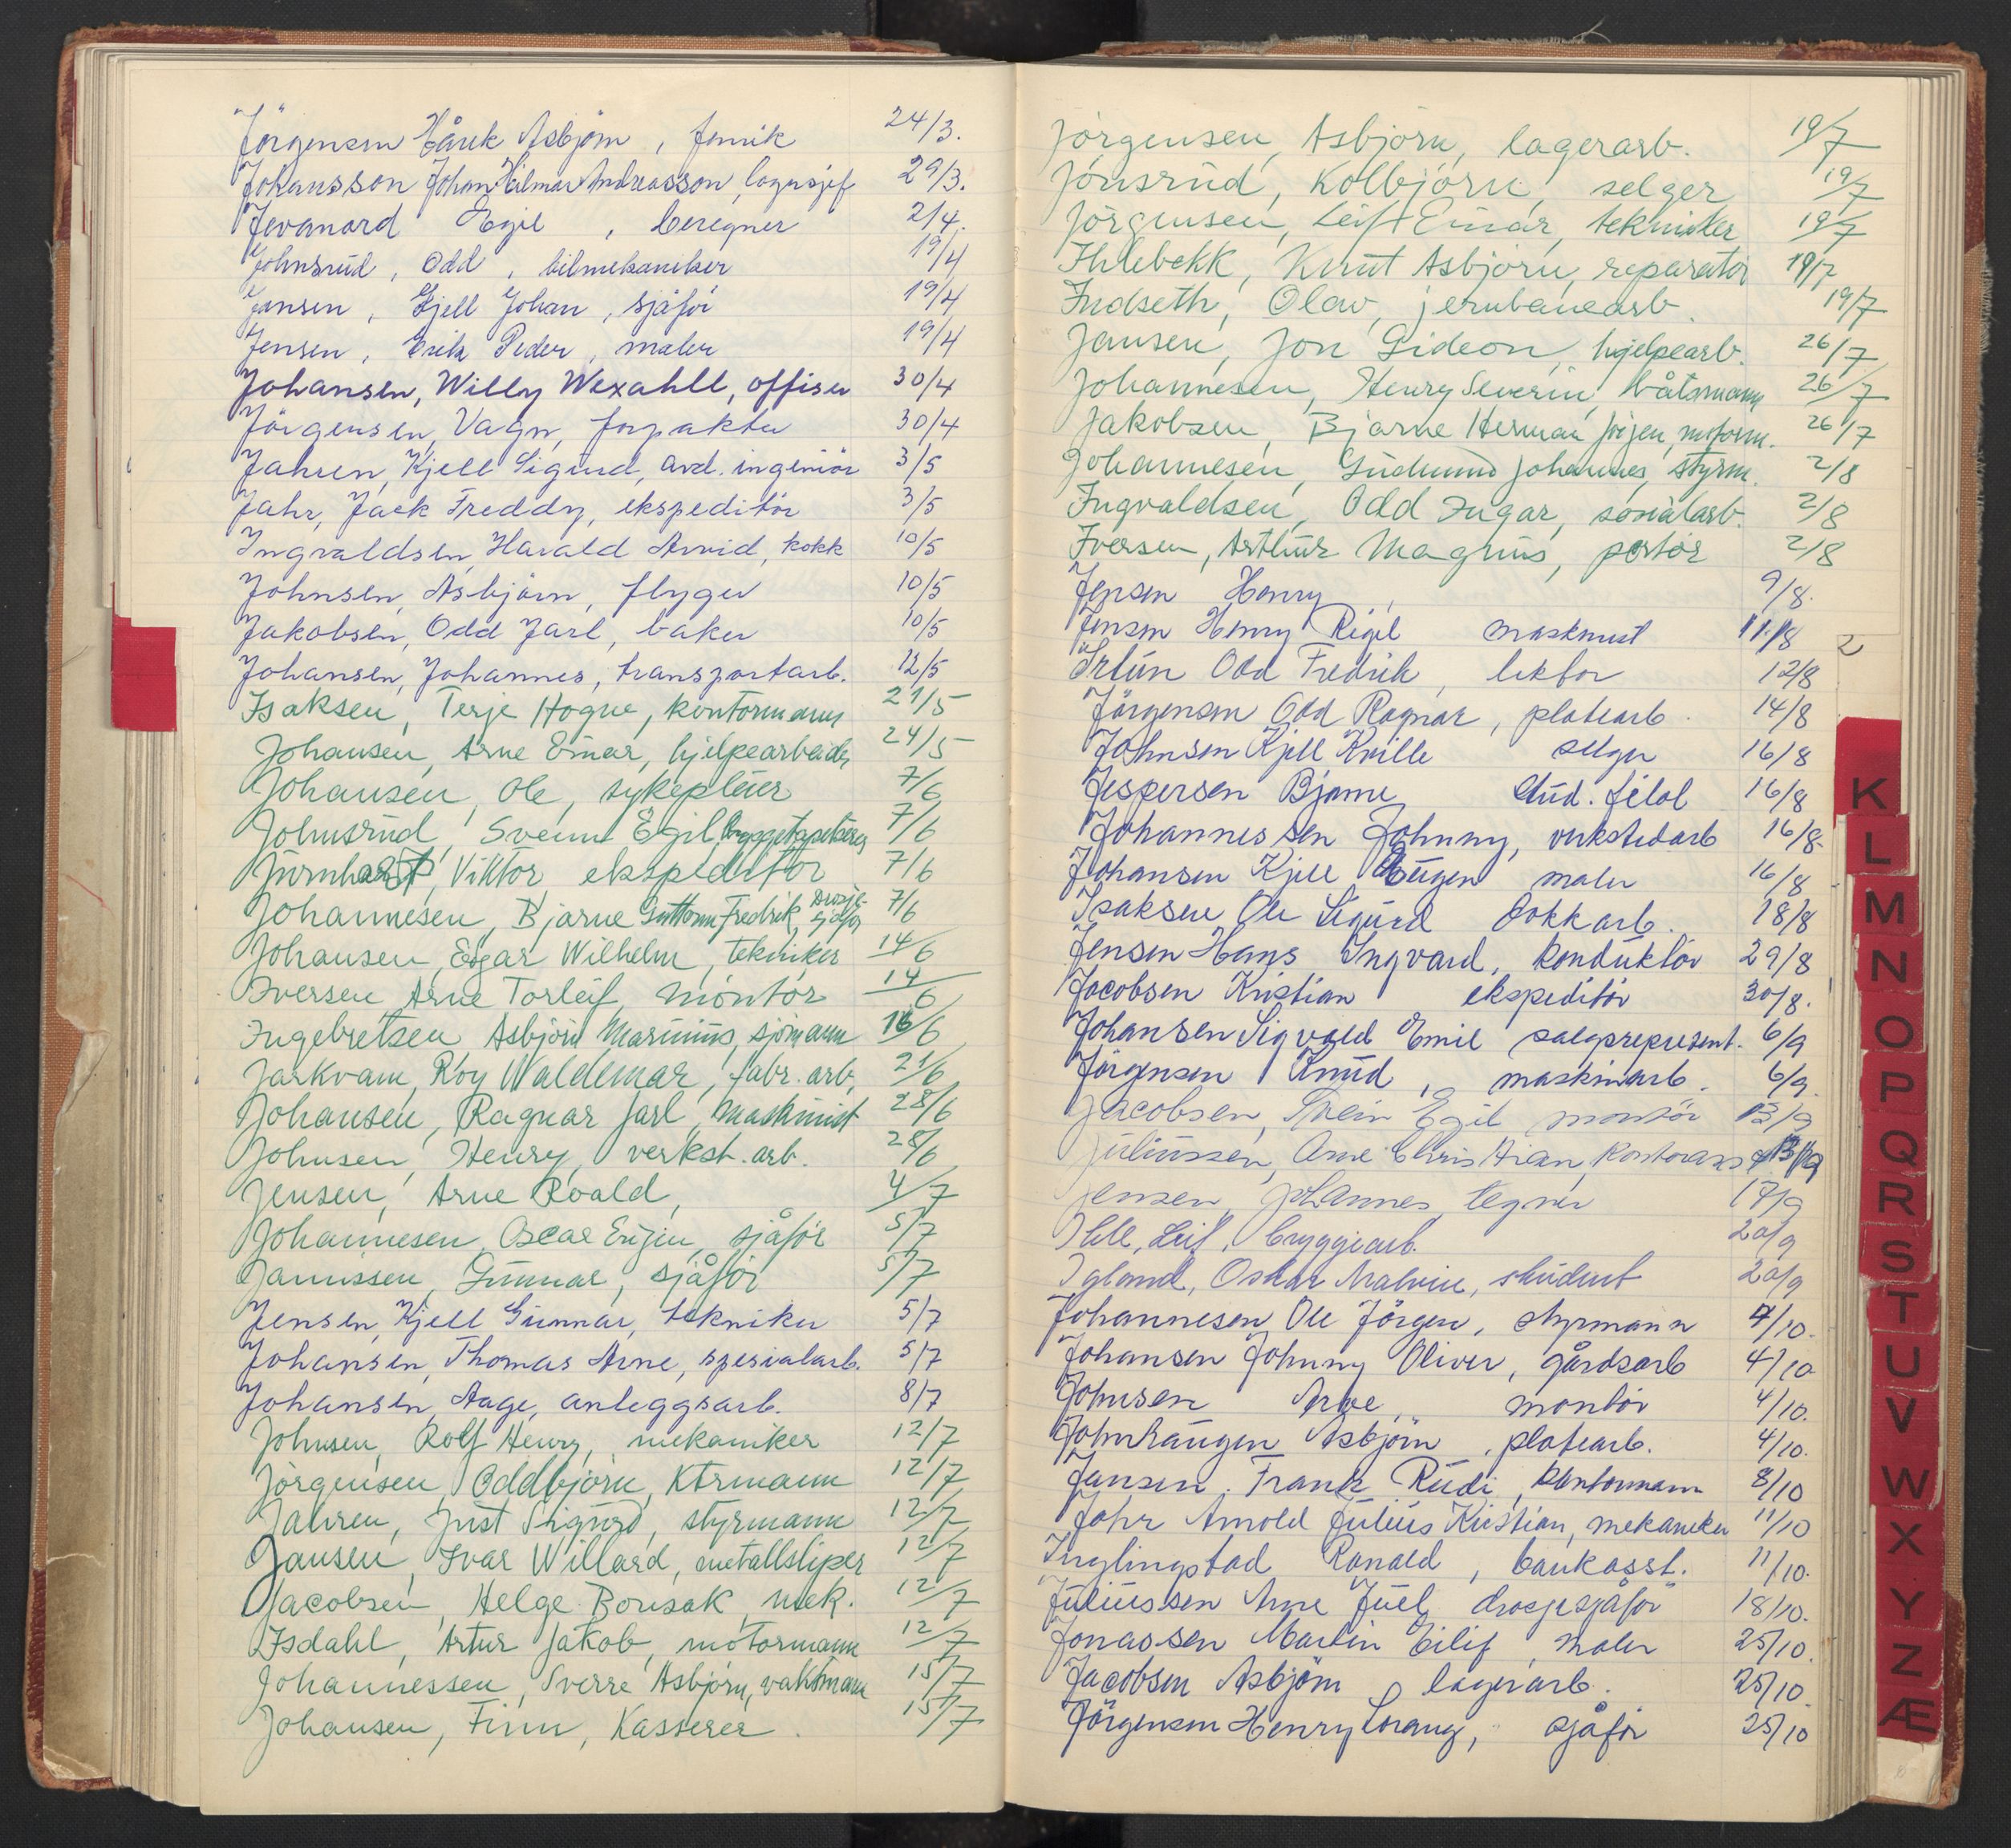 Jörgensen Hårek Asbjörn, fenrik 24/3.
Johansson Johan Hilmar Andreasson, lagersjef 29/3.
Jevanord Egil, beregner 2/4.
Johnsrud, Odd, bilmekaniker 19/4
Jansen, Kjell Johan, sjåför 19/4
Jensen, Erik Peder, maler 19/4
Johansen, Willy Wexahll, offiser 30/4
Jörgensen, Vagn, forpakter 30/4
Jahren, Kjell Sigurd, avd. ingeniör 3/5
Jahr, Jack Freddy, ekspeditör 3/5
Ingvaldsen, Harald Arvid, kokk 10/5
Johnsen, Asbjörn, flyger 10/5
Jakobsen, Odd Jarl, baker 10/5
Johansen, Johannes, transportarb. 12/5
Isaksen, Terje Hogne, kontormann 21/5
Johansen, Arne Einar, hjelpearbeider 24/5
Johansen, Ole, sykepleier 7/6
Johnsrud, Svenn Egil, byggetapetserer 7/6
Viktor, ekspeditör 7/6
Johannesen, Bjarne Guttorm Fredrik, Drosje-sjåfør 7/6
Johansen, Edgar Wilhelm, tekniker 14/6
Iversen, Arne Torleif, montör 14/6
Ingebretsen Asbjörn Marinius, sjömann 16/6
Jarkvam, Roy Waldemar, fabr. arb, 21/6
Johansen, Ragnar Jarl, maskinist 28/6
Johnsen, Henry, verkst. arb. 28/6
Jensen, Arne Roald, 4/7
Johannesen, Oscar Eugen, sjåför 5/7
Janussen, Gunnar, sjåför 5/7
Jensen, Kjell Gunnar, tekniker 5/7
Johansen, Thomas Arne, spesialarb. 5/7
Johansen, Aage, anleggsarb. 8/7
Johnsen, Rolf Henry, mekaniker 12/7
Jörgensen, Oddbjörn, Ktrmann 12/7
Jahren, Just Sigurd, styrmann 12/7
Jansen, Ivar Willard, metallsliper 12/7
Jacobsen, Helge Bonsak, mek. 12/7
Isdahl, Artur Jakob, motormann 12/7
Johannessen, Sverre Asbjörn, vaktmann 15/7
Johansen, Finn, Kasserer. 15/7
Jörgensen, Asbjörn, lagerarb. 19/7
Jonsrud, Kolbjörn, selger 19/7
Jörgensen, Leif Einar, tekniker 19/7
Ihlebekk, Knut Asbjörn, reparatör 19/7
Indseth, Olav, jernbanearb. 19/7
Jansen, Jon Gideon, hjelpearb. 26/7
Johannesen, Henry Severin, båtsmann 26/7
Jakobsen, Bjarne Herman Jörgen, motorm. 26/7
Johannesen, Gudmund Johannes, styrm. 2/8
Ingvaldsen, Odd Ingar, sosialarb. 2/8
Iversen, Arthur Magnus, portör 2/8
Jensen Henry, 9/8.
Jensen Henry Rigel maskinist 11/8
2
Irtun Odd Fredrik, lektor 12/8
Jörgensen Odd Ragnar, platearb. 14/8
Johnsen Kjell Kville selger 16/8
Jespersen Bjarne, stud. filol 16/8
Johannessen Johnny, verkstedarb 16/8.
Johansen Kjell Eugen maler 16/8
Isaksen Ole Sigurd Dokkarb. 18/8
Jensen Hans Ingvard, konduktör 29/8
Jacobsen Kristian ekspeditör 30/8.
Johansen Sigvald Emil salgsrepresent. 6/9
Jörgensen Knud, maskinarb. 6/9.
Jacobsen, Stein Egil montör 13/9
Juliussen, Arne Christian, kontorass 13/9
Jensen, Johannes, tegner 17/9
Ihle, Leif, bryggearb. 20/9
Igland, Oskar Malvin, student 20/9
Johannesen Ole Jörgen, styrmann 4/10.
Johansen Johnny Oliver, gårdsarb 4/10.
Johnsen Arve, montör 4/10.
Johnhaugen Asbjörn, platearb. 4/10.
Jansen, Frank Rudi, kontormann 8/10
Jahr Arnold Julius Kristian, mekaniker 11/10
Inglingstad Ranald, bankasst. 11/10.
Juliussen Arne Juel drosjesjåför 18/10.
Jonassen Martin Eilif, maler 25/10.
Jacobsen Asbjörn, lagerarb. 25/10.
Jörgensen Henry Lorang, sjåför 25/10
K
L
M
N
O
P
Q
R
S
T
U
V
W
X
Y
Z
Æ